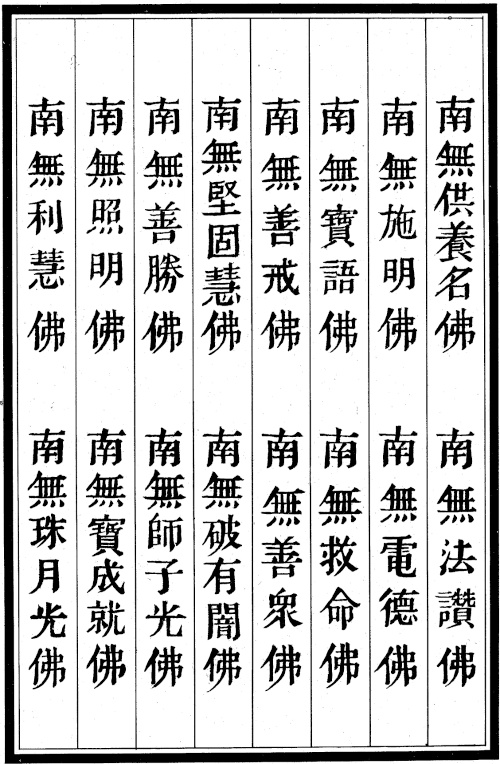 南無供養名佛 南無法讚佛
南無施明佛 南無電德佛
南無寶語佛 南無救命佛
南無善戒佛 南無善衆佛
南無堅固慧佛 南無破有闇佛
南無善勝佛 南無師子光佛
南無照明佛 南無寶成就佛
南無利慧佛 南無珠月光佛